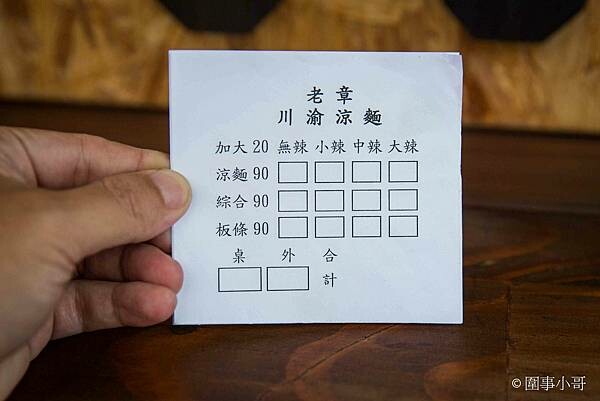 老章
川渝涼麵
加大 20 無辣 小辣 中辣 大辣
涼麵 90
綜合 90
板條 90
桌 外 合
計
© 圍事小哥